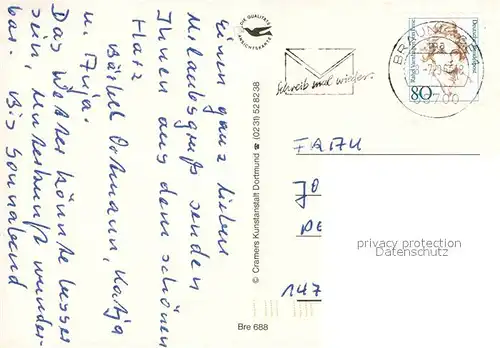 Einen ganz lieben
Urlaubsgruß senden
Ihnen aus dem schönen
Harz
Bärbel Ortmann, Katja
u. Anja.
Das Wetter könnte besser
sein, Unterkunft wunder-
bar. Bis Sonnabend
DIE QUALITÄTS
ANSICHTSKARTE
© Cramers Kunstanstalt Dortmund ☎ (0231) 528238
Bre 688
Schreib mal wieder.
BRAUNLAGE 1
80
Deutsche Bundespost
privacy protection
Datenschutz
147